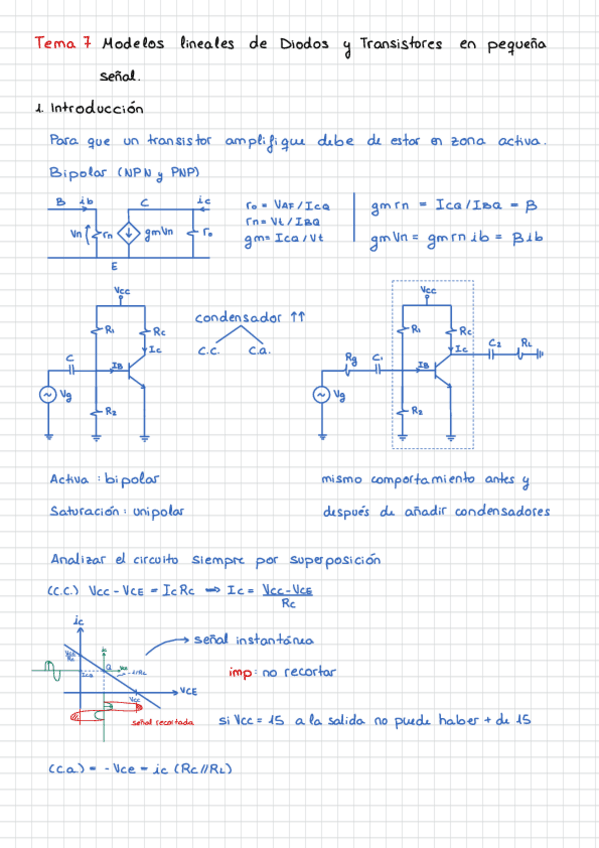 Tema 7 Modelos lineales de Diodos y Transistores en pequeña
señal.
1. Introducción
Para que un transistor amplifique debe de estar en zona activa.
Bipolar (NPN y PNP)
B ib C ic
Vn rn gmVn ro
E
ro = VAF/ICQ
rn = Vt/IBQ
gm = ICQ/Vt
gm rn = ICQ/IBQ = β
gmVn = gm rn ib = βib
Vcc
R1 Rc
Ic
C
IB
Vg
R2
condensador ↑↑
c.c. c.a.
Vcc
R1 Rc
Ic C2 RL
Rg C1
IB
Vg
R2
Activa : bipolar
Saturación : unipolar
mismo comportamiento antes y
después de añadir condensadores
Analizar el circuito siempre por superposición
(c.c.) Vcc - VCE = Ic Rc ⇒ Ic = Vcc-VCE / Rc
ic
señal instantánea
Q
ICQ
-1/Rc
VCE
Vcc
señal recortada
imp: no recortar
si Vcc = 15 a la salida no puede haber + de 15
(c.a.) = -Vce = ic (Rc//RL)